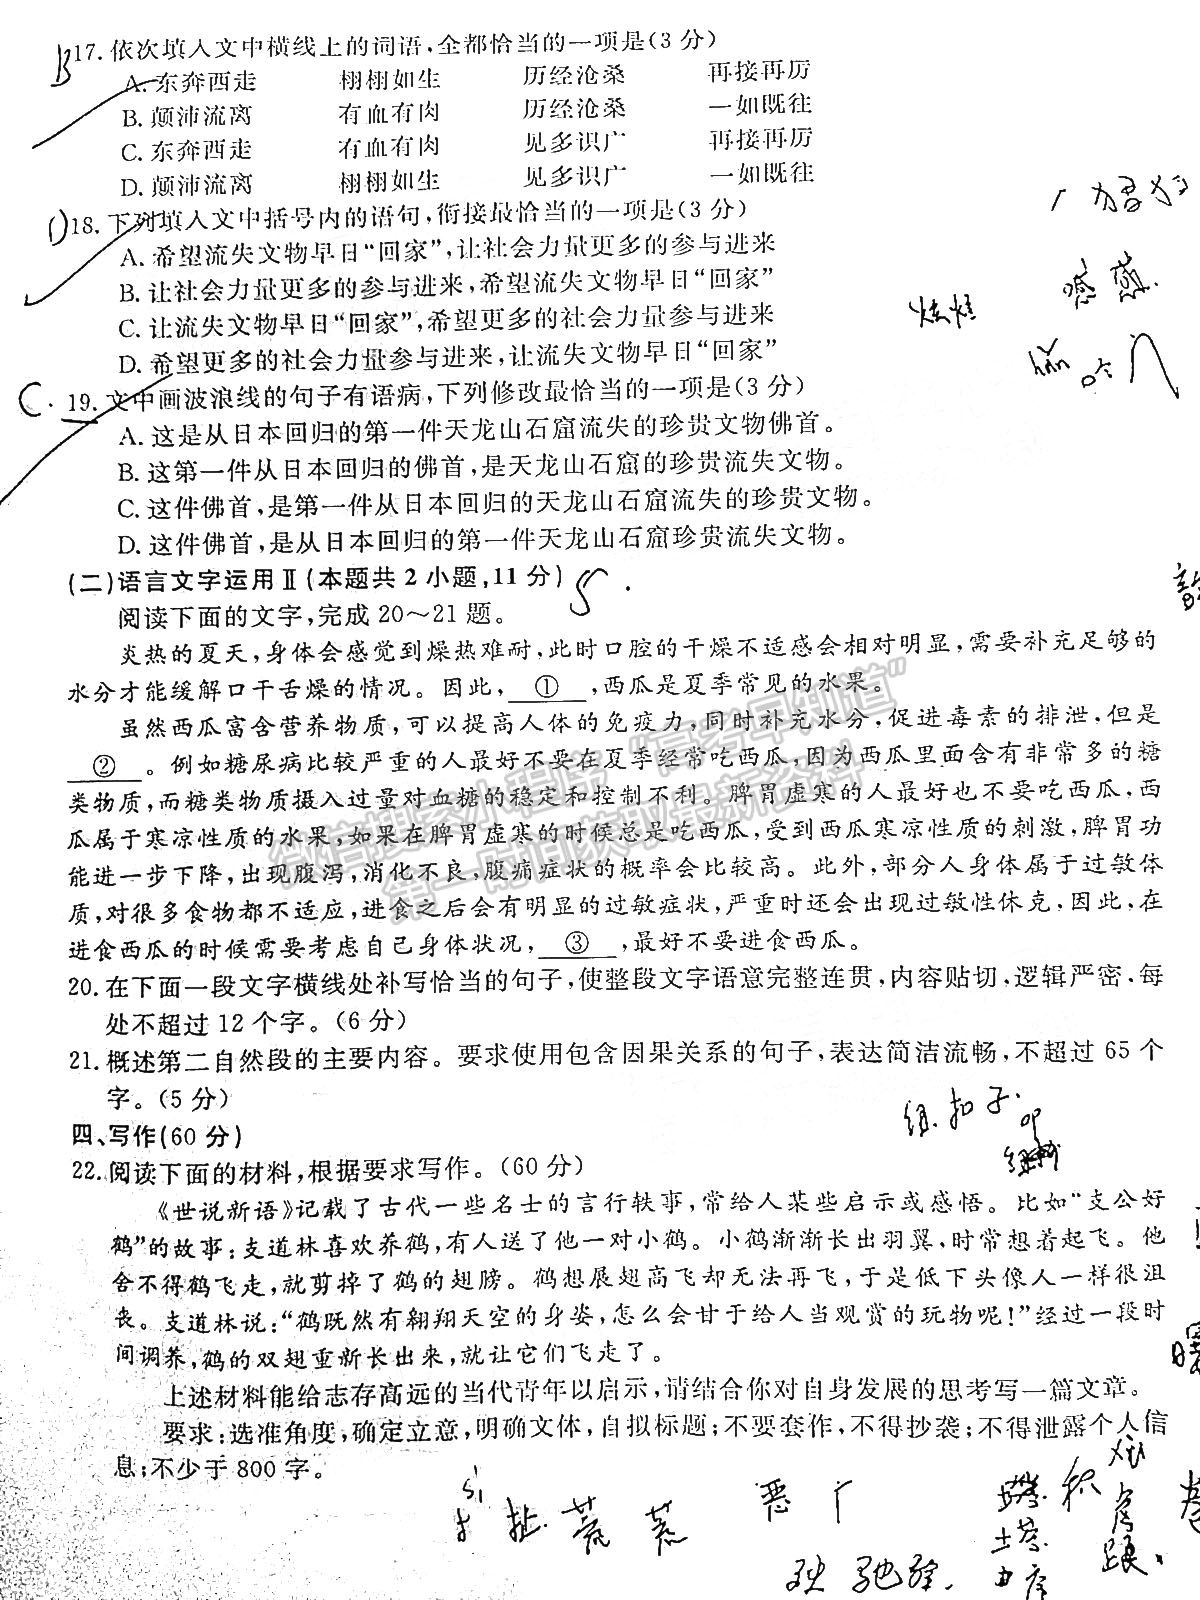 B 17. 依次填入文中横线上的词语,全都恰当的一项是(3分)
A. 东奔西走 栩栩如生 历经沧桑 再接再厉
B. 颠沛流离 有血有肉 历经沧桑 一如既往
C. 东奔西走 有血有肉 见多识广 再接再厉
D. 颠沛流离 栩栩如生 见多识广 一如既往
D 18. 下列填入文中括号内的语句,衔接最恰当的一项是(3分)
A. 希望流失文物早日“回家”,让社会力量更多的参与进来
B. 让社会力量更多的参与进来,希望流失文物早日“回家”
C. 让流失文物早日“回家”,希望更多的社会力量参与进来
D. 希望更多的社会力量参与进来,让流失文物早日“回家”
C. 19. 文中画波浪线的句子有语病,下列修改最恰当的一项是(3分)
A. 这是从日本回归的第一件天龙山石窟流失的珍贵文物佛首。
B. 这第一件从日本回归的佛首,是天龙山石窟的珍贵流失文物。
C. 这件佛首,是第一件从日本回归的天龙山石窟流失的珍贵文物。
D. 这件佛首,是从日本回归的第一件天龙山石窟珍贵流失文物。
(二)语言文字运用Ⅱ(本题共2小题,11分) 5.
阅读下面的文字,完成20～21题。
炎热的夏天,身体会感觉到燥热难耐,此时口腔的干燥不适感会相对明显,需要补充足够的
水分才能缓解口干舌燥的情况。因此, ① ,西瓜是夏季常见的水果。
虽然西瓜富含营养物质,可以提高人体的免疫力,同时补充水分,促进毒素的排泄,但是
② 。例如糖尿病比较严重的人最好不要在夏季经常吃西瓜,因为西瓜里面含有非常多的糖
类物质,而糖类物质摄入过量对血糖的稳定和控制不利。脾胃虚寒的人最好也不要吃西瓜,西
瓜属于寒凉性质的水果,如果在脾胃虚寒的时候总是吃西瓜,受到西瓜寒凉性质的刺激,脾胃功
能进一步下降,出现腹泻,消化不良,腹痛症状的概率会比较高。此外,部分人身体属于过敏体
质,对很多食物都不适应,进食之后会有明显的过敏症状,严重时还会出现过敏性休克,因此,在
进食西瓜的时候需要考虑自己身体状况, ③ ,最好不要进食西瓜。
微信搜索小程序“高考早知道”
第一时间获取最新资料
20. 在下面一段文字横线处补写恰当的句子,使整段文字语意完整连贯,内容贴切,逻辑严密,每
处不超过12个字。(6分)
21. 概述第二自然段的主要内容。要求使用包含因果关系的句子,表达简洁流畅,不超过65个
字。(5分)
四、写作(60分)
22. 阅读下面的材料,根据要求写作。(60分)
《世说新语》记载了古代一些名士的言行轶事,常给人某些启示或感悟。比如“支公好
鹤”的故事:支道林喜欢养鹤,有人送了他一对小鹤。小鹤渐渐长出羽翼,时常想着起飞。他
舍不得鹤飞走,就剪掉了鹤的翅膀。鹤想展翅高飞却无法再飞,于是低下头像人一样很沮
丧。支道林说:“鹤既然有翱翔天空的身姿,怎么会甘于给人当观赏的玩物呢!”经过一段时
间调养,鹤的双翅重新长出来,就让它们飞走了。
上述材料能给志存高远的当代青年以启示,请结合你对自身发展的思考写一篇文章。
要求:选准角度,确定立意,明确文体,自拟标题;不要套作,不得抄袭;不得泄露个人信
息;不少于800字。